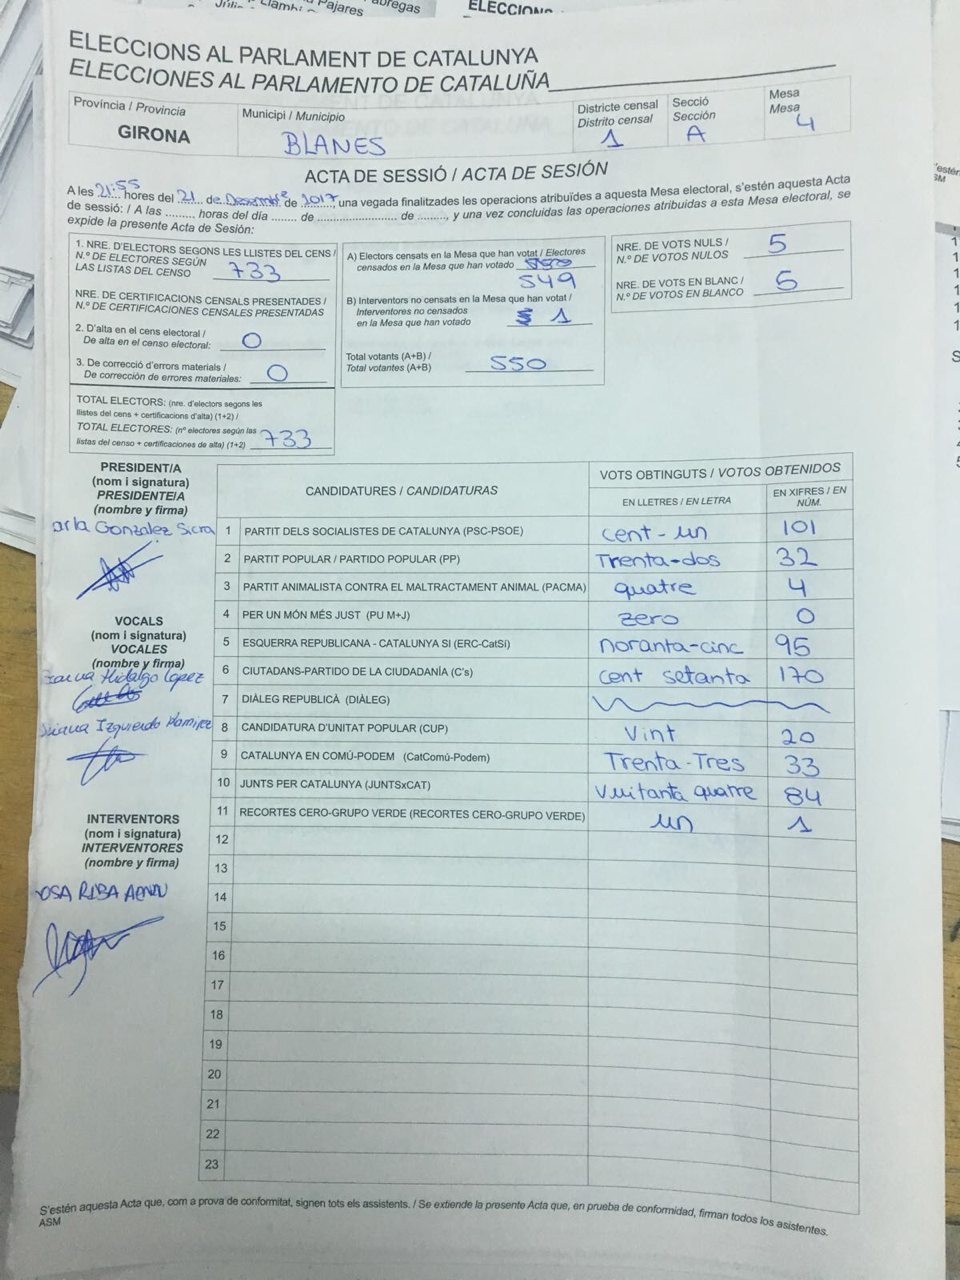 ELECCIONS
ELECCIONS AL PARLAMENT DE CATALUNYA
ELECCIONES AL PARLAMENTO DE CATALUÑA
Província / Provincia
GIRONA
Municipi / Municipio
BLANES
Districte censal
Distrito censal
1
Secció
Sección
A
Mesa
Mesa
4
ACTA DE SESSIÓ / ACTA DE SESIÓN
A les 21:55 hores del 21 de Desembre de 2017, una vegada finalitzades les operacions atribuïdes a aquesta Mesa electoral, s'estén aquesta Acta
de sessió: / A las ......... horas del día ....... de ........................ de ........, y una vez concluidas las operaciones atribuidas a esta Mesa electoral, se
expide la presente Acta de Sesión:
1. NRE. D'ELECTORS SEGONS LES LLISTES DEL CENS /
N.º DE ELECTORES SEGÚN
LAS LISTAS DEL CENSO 733
NRE. DE CERTIFICACIONS CENSALS PRESENTADES /
N.º DE CERTIFICACIONES CENSALES PRESENTADAS
2. D'alta en el cens electoral /
De alta en el censo electoral: 0
3. De correcció d'errors materials /
De corrección de errores materiales: 0
TOTAL ELECTORS: (nre. d'electors segons les
llistes del cens + certificacions d'alta) (1+2) /
TOTAL ELECTORES: (nº electores según las
listas del censo + certificaciones de alta) (1+2) 733
A) Electors censats en la Mesa que han votat / Electores
censados en la Mesa que han votado
549
B) Interventors no censats en la Mesa que han votat /
Interventores no censados
en la Mesa que han votado 1
Total votants (A+B) /
Total votantes (A+B) 550
NRE. DE VOTS NULS /
N.º DE VOTOS NULOS 5
NRE. DE VOTS EN BLANC /
N.º DE VOTOS EN BLANCO 5
PRESIDENT/A
(nom i signatura)
PRESIDENTE/A
(nombre y firma)
González
VOCALS
(nom i signatura)
VOCALES
(nombre y firma)
Hidalgo López
Izquierdo Ramirez
INTERVENTORS
(nom i signatura)
INTERVENTORES
(nombre y firma)
OSA RIBA
CANDIDATURES / CANDIDATURAS
VOTS OBTINGUTS / VOTOS OBTENIDOS
EN LLETRES / EN LETRA
EN XIFRES / EN
NÚM.
1 PARTIT DELS SOCIALISTES DE CATALUNYA (PSC-PSOE) cent-un 101
2 PARTIT POPULAR / PARTIDO POPULAR (PP) Trenta-dos 32
3 PARTIT ANIMALISTA CONTRA EL MALTRACTAMENT ANIMAL (PACMA) quatre 4
4 PER UN MÓN MÉS JUST (PU M+J) zero 0
5 ESQUERRA REPUBLICANA - CATALUNYA SI (ERC-CatSí) noranta-cinc 95
6 CIUTADANS-PARTIDO DE LA CIUDADANÍA (C's) cent setanta 170
7 DIÀLEG REPUBLICÀ (DIÀLEG)
8 CANDIDATURA D'UNITAT POPULAR (CUP) Vint 20
9 CATALUNYA EN COMÚ-PODEM (CatComú-Podem) Trenta-Tres 33
10 JUNTS PER CATALUNYA (JUNTSxCAT) Vuitanta quatre 84
11 RECORTES CERO-GRUPO VERDE (RECORTES CERO-GRUPO VERDE) un 1
12
13
14
15
16
17
18
19
20
21
22
23
S'estén aquesta Acta que, com a prova de conformitat, signen tots els assistents. / Se extiende la presente Acta que, en prueba de conformidad, firman todos los asistentes.
ASM